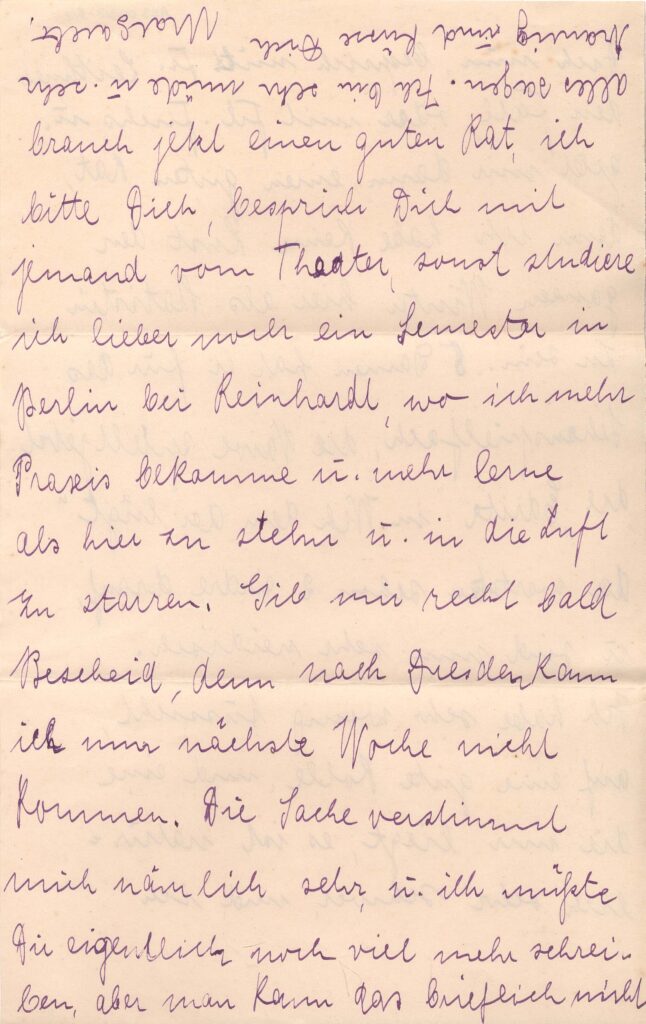 brauch jetzt einen guten Rat, ich
bitte Dich, besprich Dich mit
jemand vom Theater, sonst studiere
ich lieber noch ein Semester in
Berlin bei Reinhardt, wo ich mehr
Praxis bekomme u. mehr lerne
als hier zu stehn u. in die Luft
zu starren. Gib mir recht bald
Bescheid, denn nach Dresden kann
ich nur nächste Woche nicht
kommen. Die Sache verstimmt
mich nämlich sehr, u. ich müßte
Dir eigentlich noch viel mehr schrei-
ben, aber man kann das brieflich nicht
alles sagen. Ich bin sehr müde u. sehr
traurig und küsse Dich
Margarete.